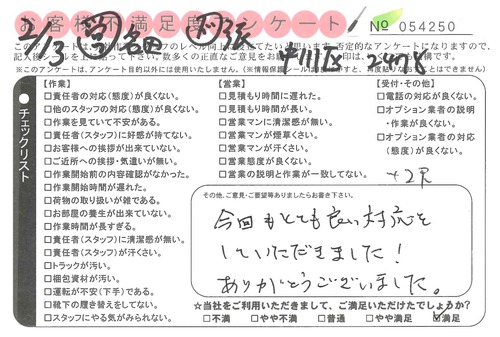 お客様不満足度アンケート
No 054250
2/3
このアンケートは
のレベル向上に役立てたいと思います。否定的なアンケートになりますので、
※このアンケートは、アンケート目的以外には使用いたしません。
チェックリスト
【作業】
□責任者の対応(態度)が良くない。
□他のスタッフの対応(態度)が良くない。
□作業を見ていて不安がある。
□責任者(スタッフ)に好感が持てない。
□お客様への挨拶が出来ていない。
□ご近所への挨拶・気遣いが無い。
□作業開始前の内容確認がなかった。
□作業開始時間が遅れた。
□荷物の取り扱いが雑である。
□お部屋の養生が出来ていない。
□作業時間が長すぎる。
□責任者(スタッフ)に清潔感が無い。
□責任者(スタッフ)が汗くさい。
□トラックが汚い。
□梱包資材が汚い。
□運転が不安(下手)である。
□靴下の履き替えをしてない。
□スタッフにやる気がみられない。
【営業】
□見積もり時間に遅れた。
□見積もり時間が長い。
□営業マンに清潔感が無い。
□営業マンが煙草くさい。
□営業マンが汗くさい。
□営業態度が良くない。
□営業の説明と作業が一致してない。
【受付・その他】
□電話の対応が良くない。
□オプション業者の説明
・作業が良くない。
□オプション業者の対応
(態度)が良くない。
その他、ご意見・ご要望等ありましたらお書き下さい。
今回もとても良い対応を
していただきました!
ありがとうございました。
☆当社をご利用いただきまして、ご満足いただけたでしょうか?
□不満 □やや不満 □普通 □やや満足 ☑満足